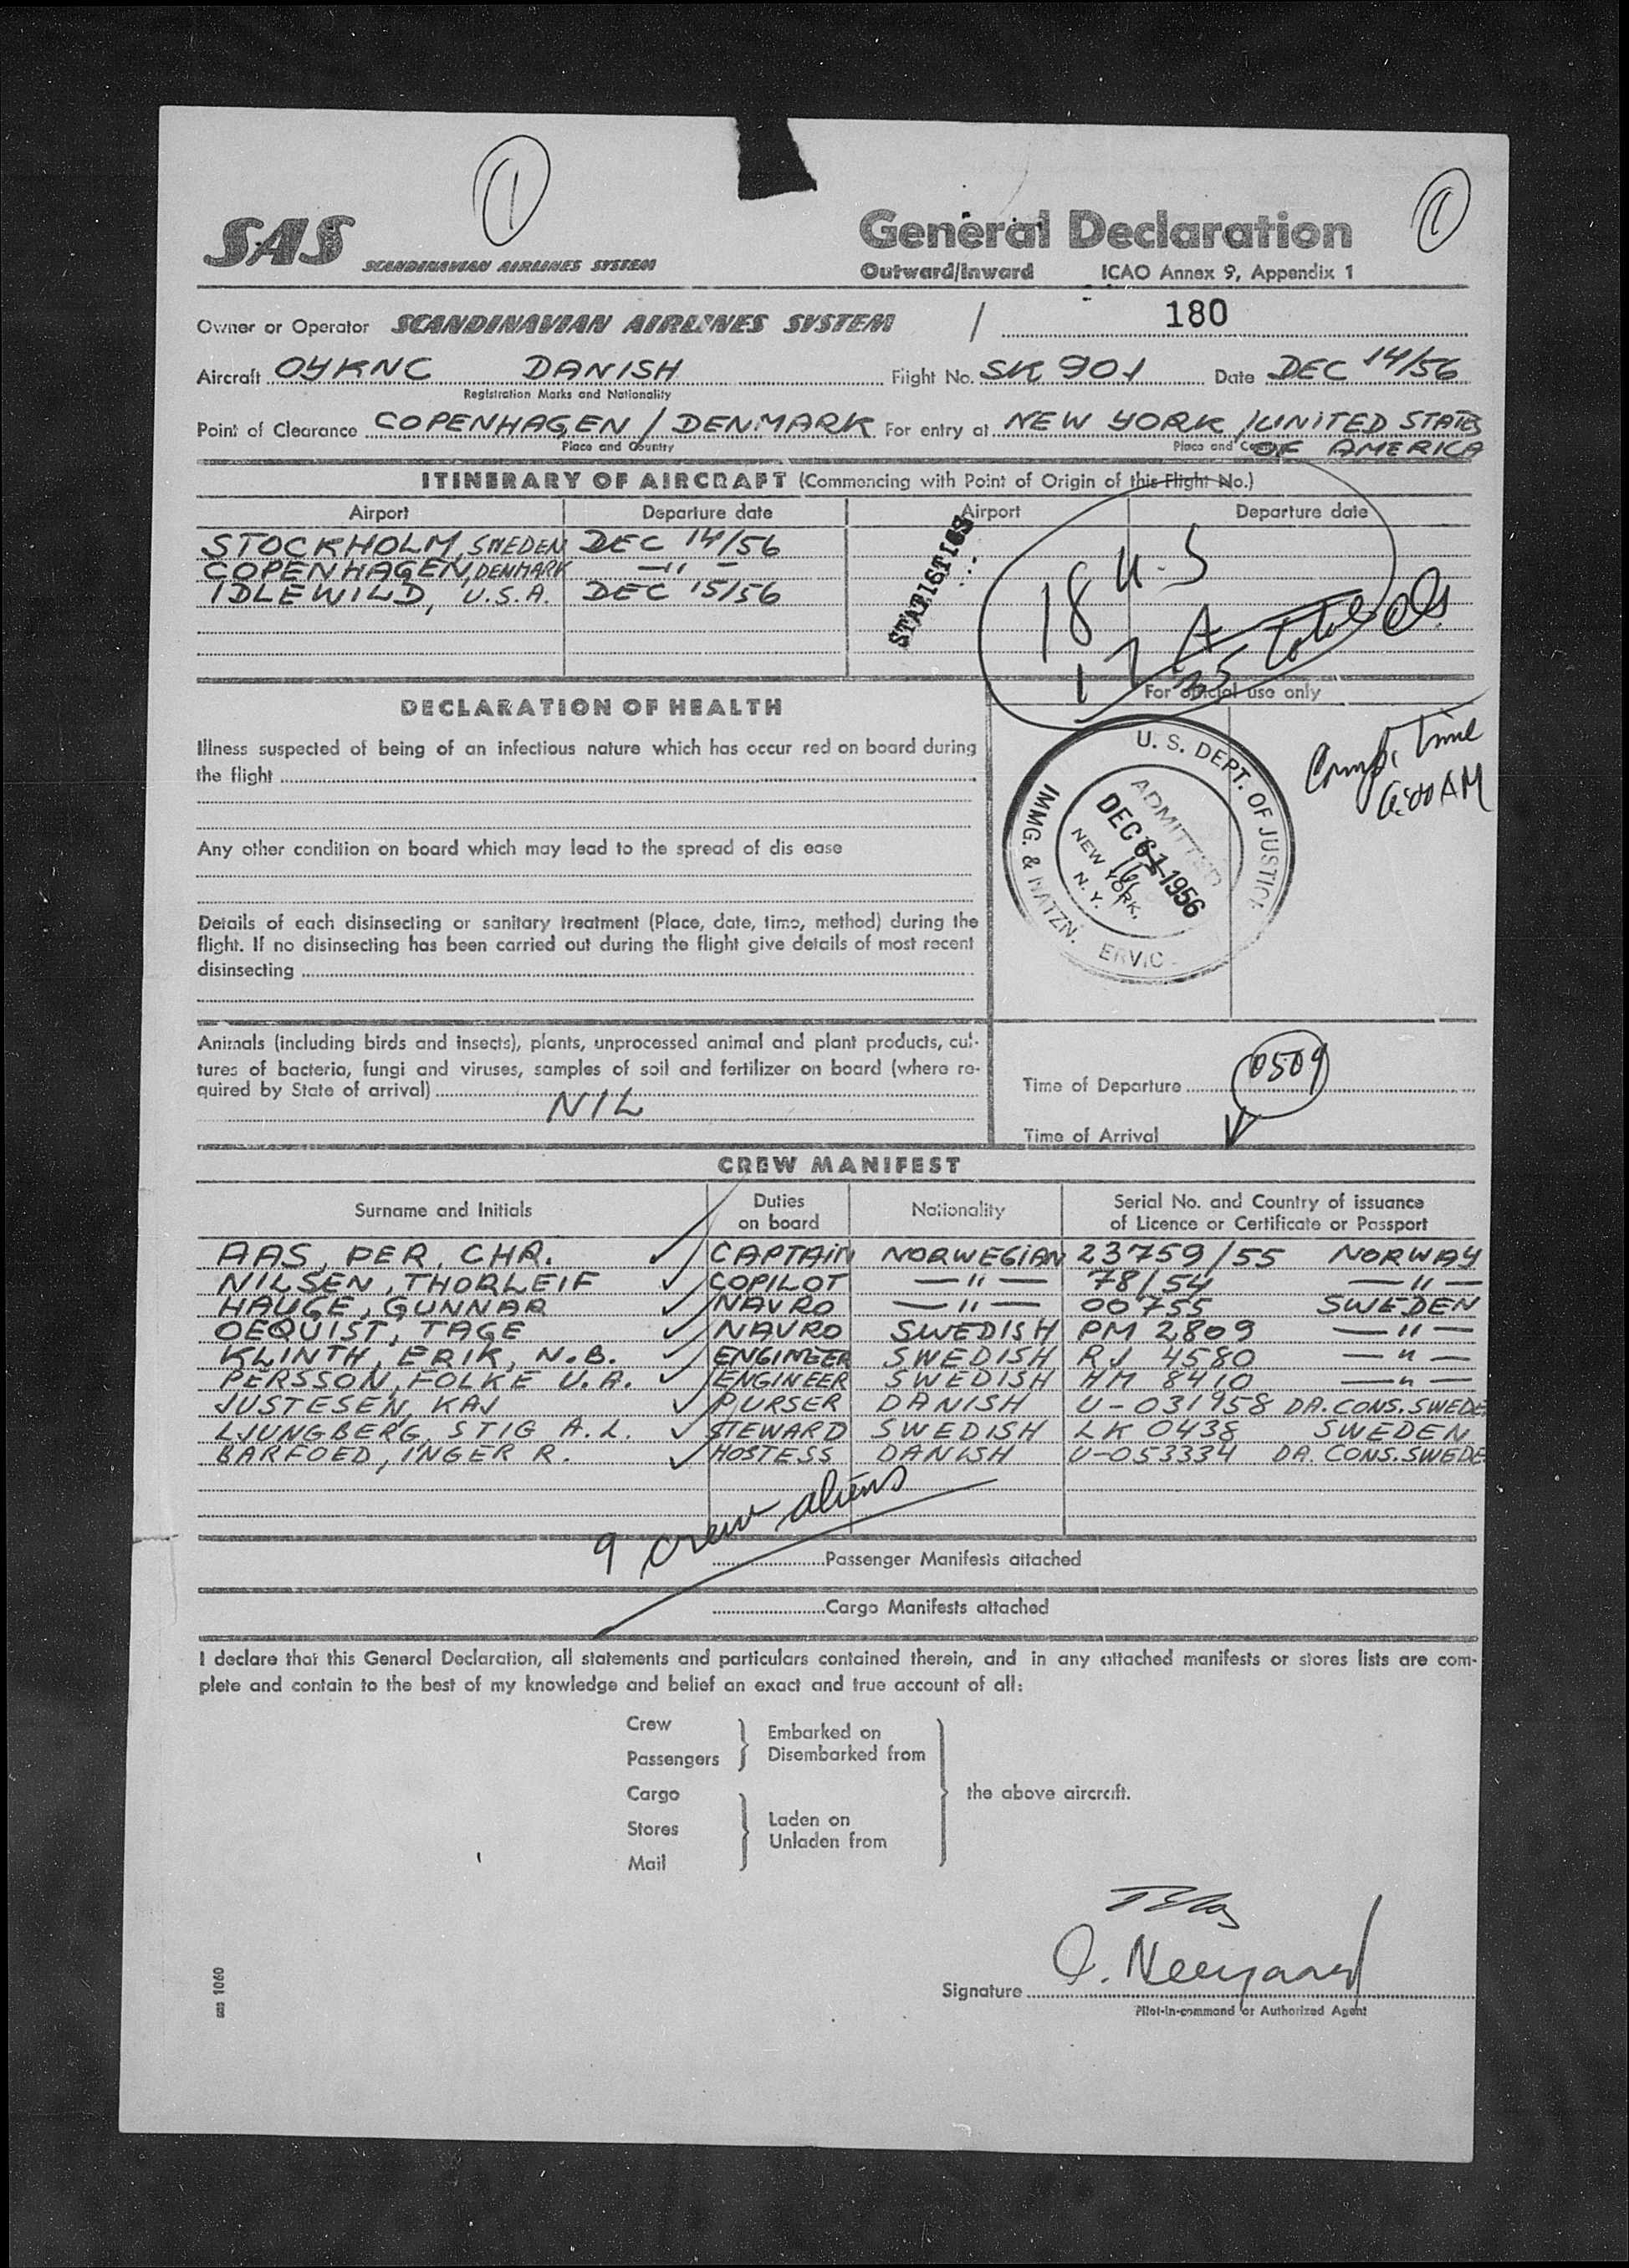 1
1
SAS SCANDINAVIAN AIRLINES SYSTEM
General Declaration
Outward/Inward ICAO Annex 9, Appendix 1
Owner or Operator SCANDINAVIAN AIRLINES SYSTEM / 180
Aircraft OYKNC DANISH Flight No. SK 901 Date DEC 14/56
Registration Marks and Nationality
Point of Clearance COPENHAGEN / DENMARK For entry at NEW YORK / UNITED STATES
Place and Country Place and OF AMERICA
ITINERARY OF AIRCRAFT (Commencing with Point of Origin of this Flight No.)
Airport Departure date Airport Departure date
STOCKHOLM, SWEDEN DEC 14/56
COPENHAGEN, DENMARK —"—
IDLEWILD, U.S.A. DEC 15/56
STATISTICS
18 U.S
17 A
35 Total
For official use only
DECLARATION OF HEALTH
Illness suspected of being of an infectious nature which has occur red on board during
the flight
Any other condition on board which may lead to the spread of dis ease
Details of each disinsecting or sanitary treatment (Place, date, time, method) during the
flight. If no disinsecting has been carried out during the flight give details of most recent
disinsecting
Comp. Time
6:00 AM
U. S. DEPT. OF JUSTICE
ADMITTED
DEC 1956
NEW YORK,
N. Y.
IMMG. & NATZN. ERVIC
Animals (including birds and insects), plants, unprocessed animal and plant products, cul-
tures of bacteria, fungi and viruses, samples of soil and fertilizer on board (where re-
quired by State of arrival)
NIL
Time of Departure 0509
Time of Arrival
CREW MANIFEST
Surname and Initials Duties on board Nationality Serial No. and Country of issuance of Licence or Certificate or Passport
AAS, PER, CHR. ✓ CAPTAIN NORWEGIAN 23759/55 NORWAY
NILSEN, THORLEIF ✓ COPILOT —"— 78/54 —"—
HAUGE, GUNNAR ✓ NAVRO —"— 00755 SWEDEN
OEQUIST, TAGE ✓ NAVRO SWEDISH PM 2809 —"—
KLINTH, ERIK, N.B. ✓ ENGINEER SWEDISH RJ 4580 —"—
PERSSON, FOLKE U.A. ✓ ENGINEER SWEDISH HM 8410 —"—
JUSTESEN, KAJ ✓ PURSER DANISH U-031958 DA. CONS. SWEDE
LJUNGBERG, STIG A.L. ✓ STEWARD SWEDISH LK 0438 SWEDEN
BARFOED, INGER R. ✓ HOSTESS DANISH U-053334 DA. CONS. SWEDE
9 crew aliens
Passenger Manifests attached
Cargo Manifests attached
I declare that this General Declaration, all statements and particulars contained therein, and in any attached manifests or stores lists are com-
plete and contain to the best of my knowledge and belief an exact and true account of all:
Crew
Passengers
Embarked on
Disembarked from
Cargo
Stores
Mail
Laden on
Unladen from
the above aircraft.
Signature O. Neergaard
Pilot-in-command or Authorized Agent
1060